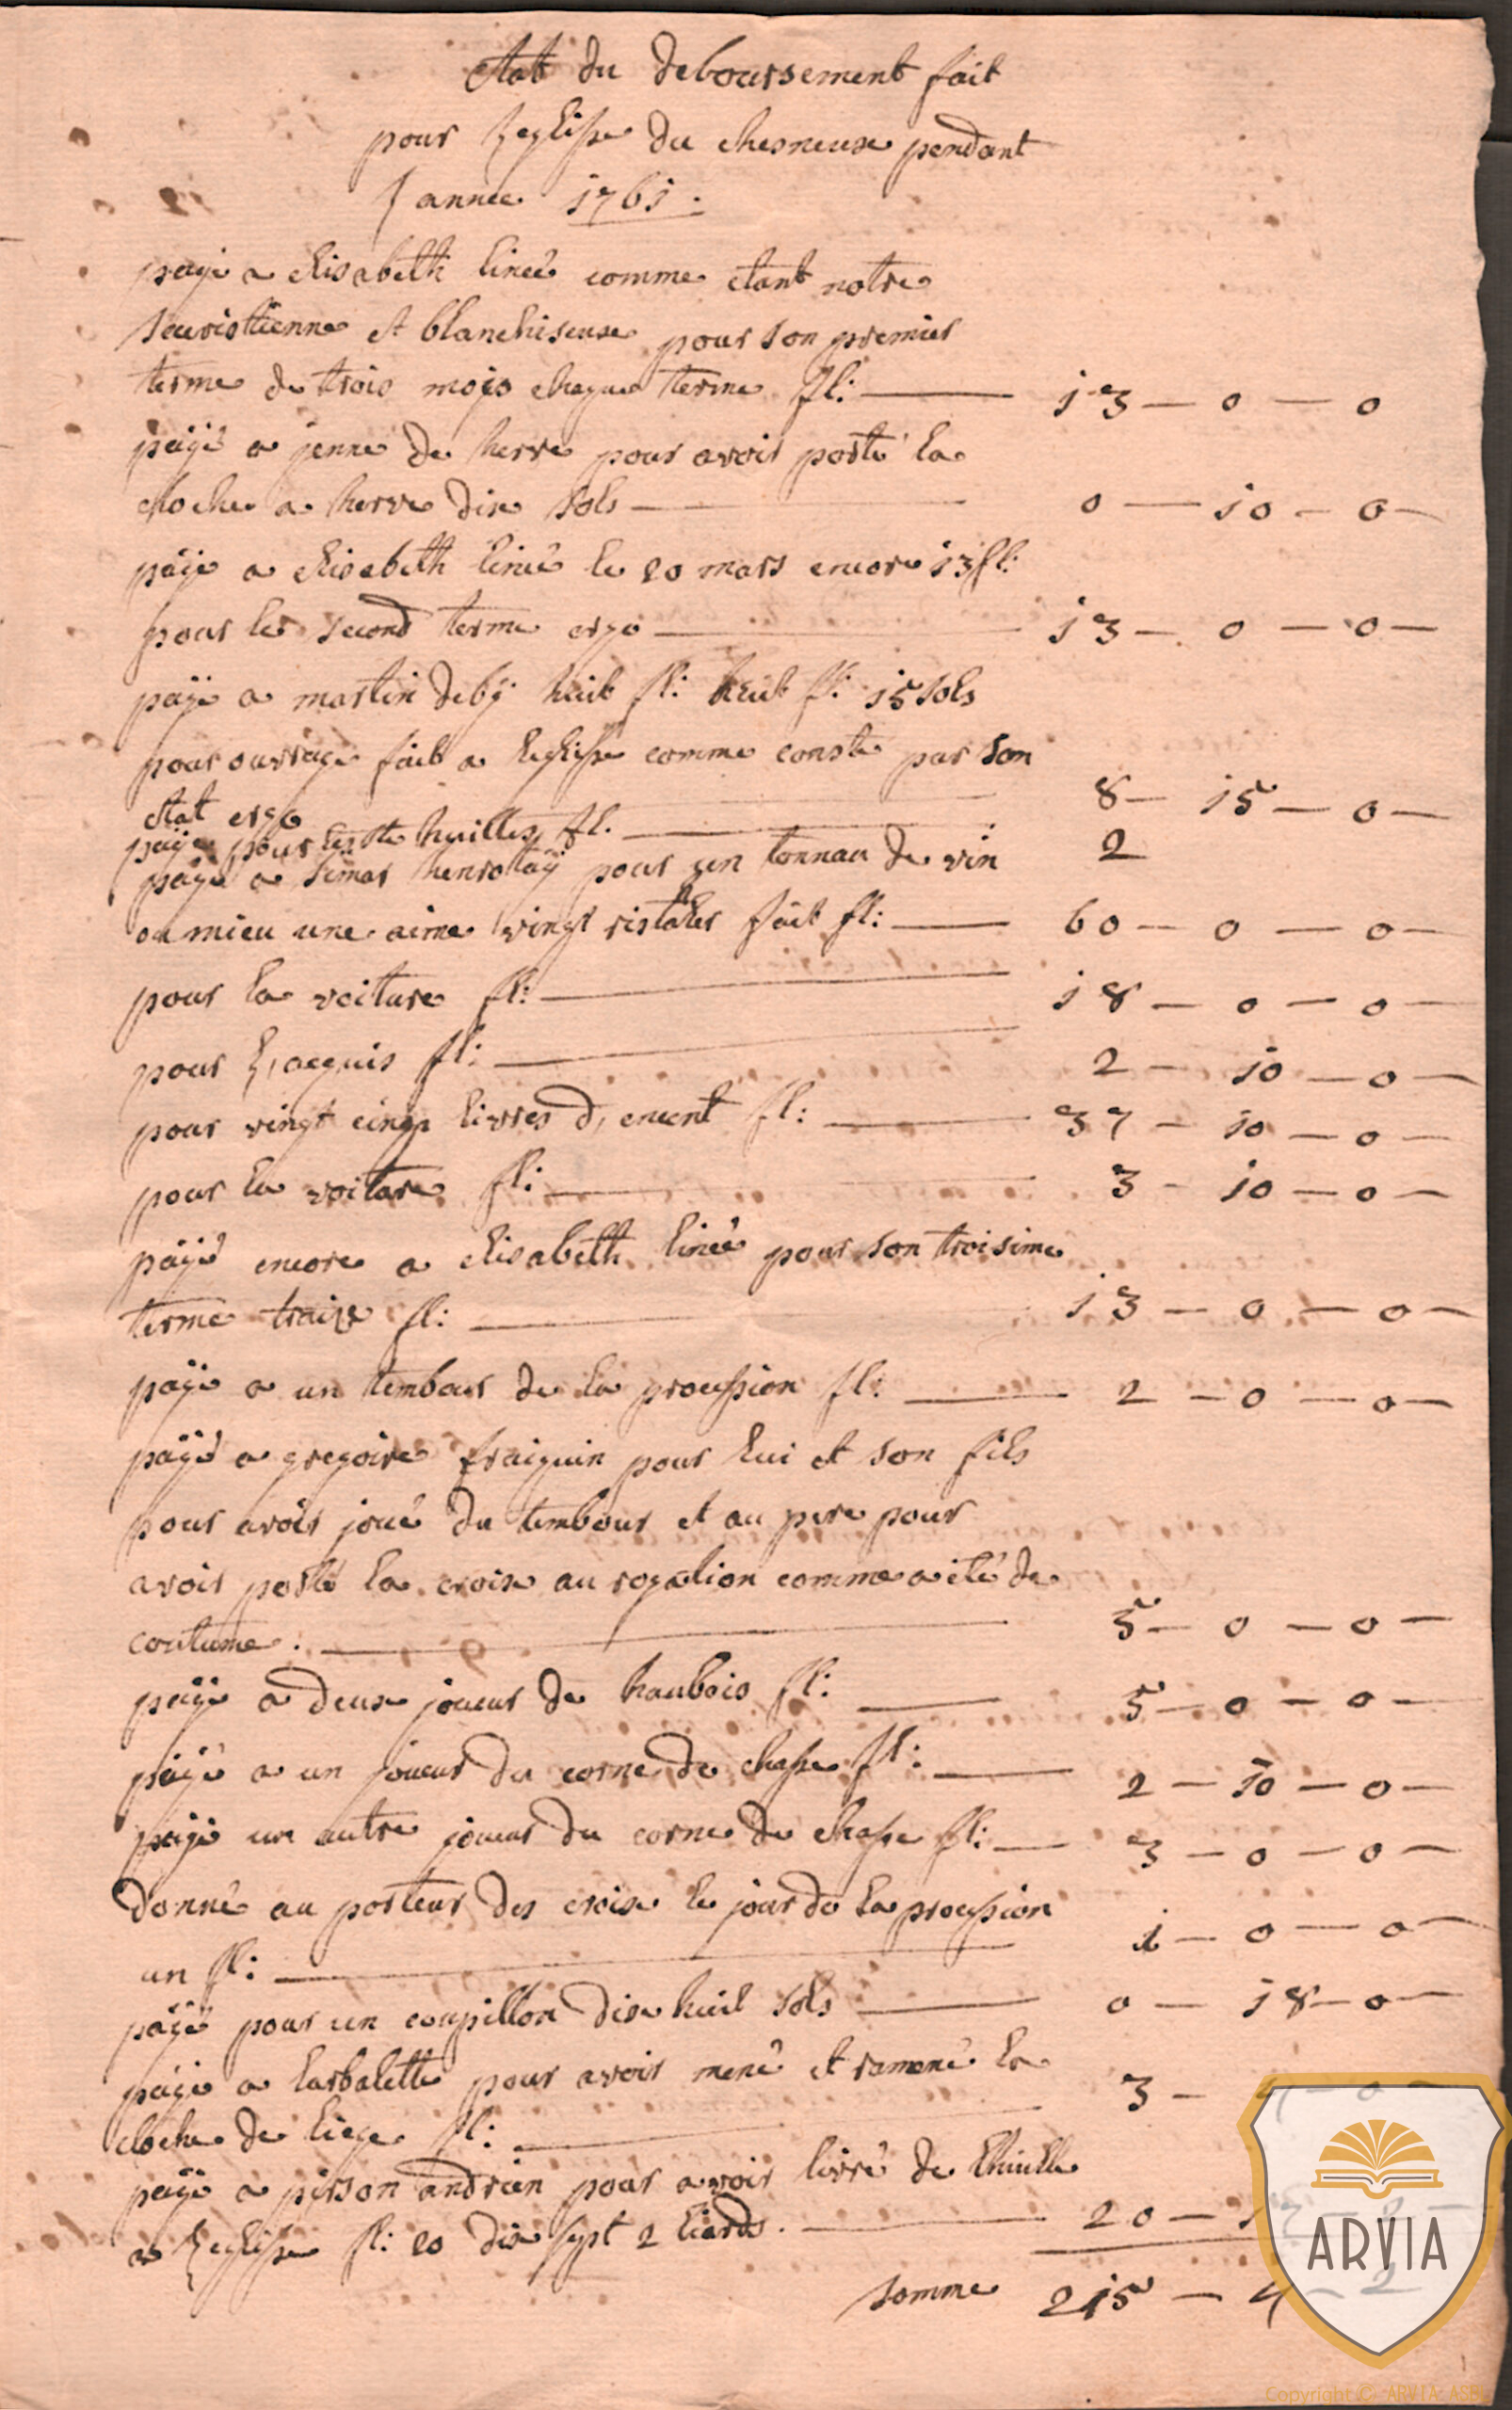 etat du deboursement fait
pour l'eglisse du chesneux pendant
l'annee 1761.
payé a elisabeth linee comme etant notre
seuristienne et blanchiseuse pour son premier
terme de trois mois chaque terme fl: 13 — 0 — 0
paÿé a jenne de herve pour avoir porté la
cloche a herve dix sols — 0 — 10 — 0
paÿé a elisabeth lineé le 20 mars encore 13 fl:
pour le second terme ergo — 13 — 0 — 0
paÿé a martin debÿ huit fl: huit fl: 15 sols
pour ouvrage fait a leglisse comme conste par son
etat ergo — 8 — 15 — 0
paÿé pour les ste huilles fl. — 2
paÿé a henrotaÿ pour un tonnau de vin
ou mieu une aime vingt ristaler fait fl: — 60 — 0 — 0
pour la voiture fl: — 18 — 0 — 0
pour l,acquis fl: — 2 — 10 — 0
pour vingt cinq livres d,encent fl: — 37 — 10 — 0
pour la voiture fl: — 3 — 10 — 0
paÿé encore a elisabeth lineé pour son troisime
terme traize fl: — 13 — 0 — 0
paÿé a un tembour de la procession fl: — 2 — 0 — 0
paÿé a gregoire fraiquin pour lui et son fils
pour avoir joué du tembour et au pere pour
avoir porté la croix au rogation comme a eté de
coutume. — 5 — 0 — 0
paÿé a deux joueur de haubois fl: — 5 — 0 — 0
paÿé a un joueur du corne de chasse fl: — 2 — 10 — 0
paÿé un autre joueur du corne de chasse fl: — 3 — 0 — 0
donné au porteur des croix le jour de la procession
un fl: — 1 — 0 — 0
paÿé pour un coupillon dix huit sols — 0 — 18 — 0
paÿé a larbalette pour avoir mené et ramené la
cloche de liege fl: — 3 —
paÿé a pirson andrien pour avoir livré de lhuille
a l'eglisse fl: 20 dix sept 2 liards. — 20 —
somme 215 — 4 — 2
ARVIA
Copyright © ARVIA ASBL